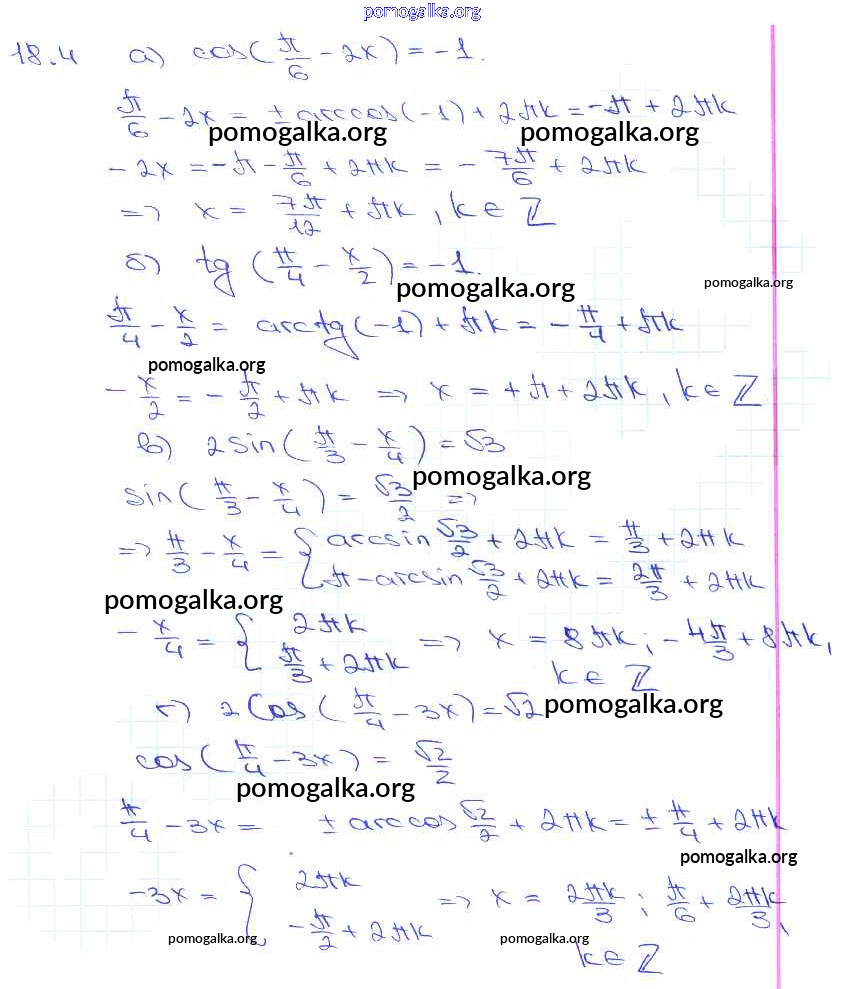 pomogalka.org
18.4 а) cos(π/6 - 2x) = -1.
π/6 - 2x = ± arccos(-1) + 2πk = -π + 2πk
pomogalka.org pomogalka.org
-2x = -π - π/6 + 2πk = -7π/6 + 2πk
=> x = 7π/12 + πk, k ∈ ℤ
б) tg(π/4 - x/2) = -1.
pomogalka.org pomogalka.org
π/4 - x/2 = arctg(-1) + πk = -π/4 + πk
pomogalka.org
-x/2 = -π/2 + πk => x = +π + 2πk, k ∈ ℤ
в) 2sin(π/3 - x/4) = √3
pomogalka.org
sin(π/3 - x/4) = √3/2 =>
=> π/3 - x/4 = { arcsin √3/2 + 2πk = π/3 + 2πk
π - arcsin √3/2 + 2πk = 2π/3 + 2πk
pomogalka.org
-x/4 = { 2πk
π/3 + 2πk => x = 8πk; -4π/3 + 8πk,
k ∈ ℤ
г) 2cos(π/4 - 3x) = √2
pomogalka.org
cos(π/4 - 3x) = √2/2
pomogalka.org
π/4 - 3x = ± arccos √2/2 + 2πk = ± π/4 + 2πk
pomogalka.org
-3x = { 2πk
-π/2 + 2πk => x = 2πk/3; π/6 + 2πk/3,
pomogalka.org pomogalka.org
k ∈ ℤ